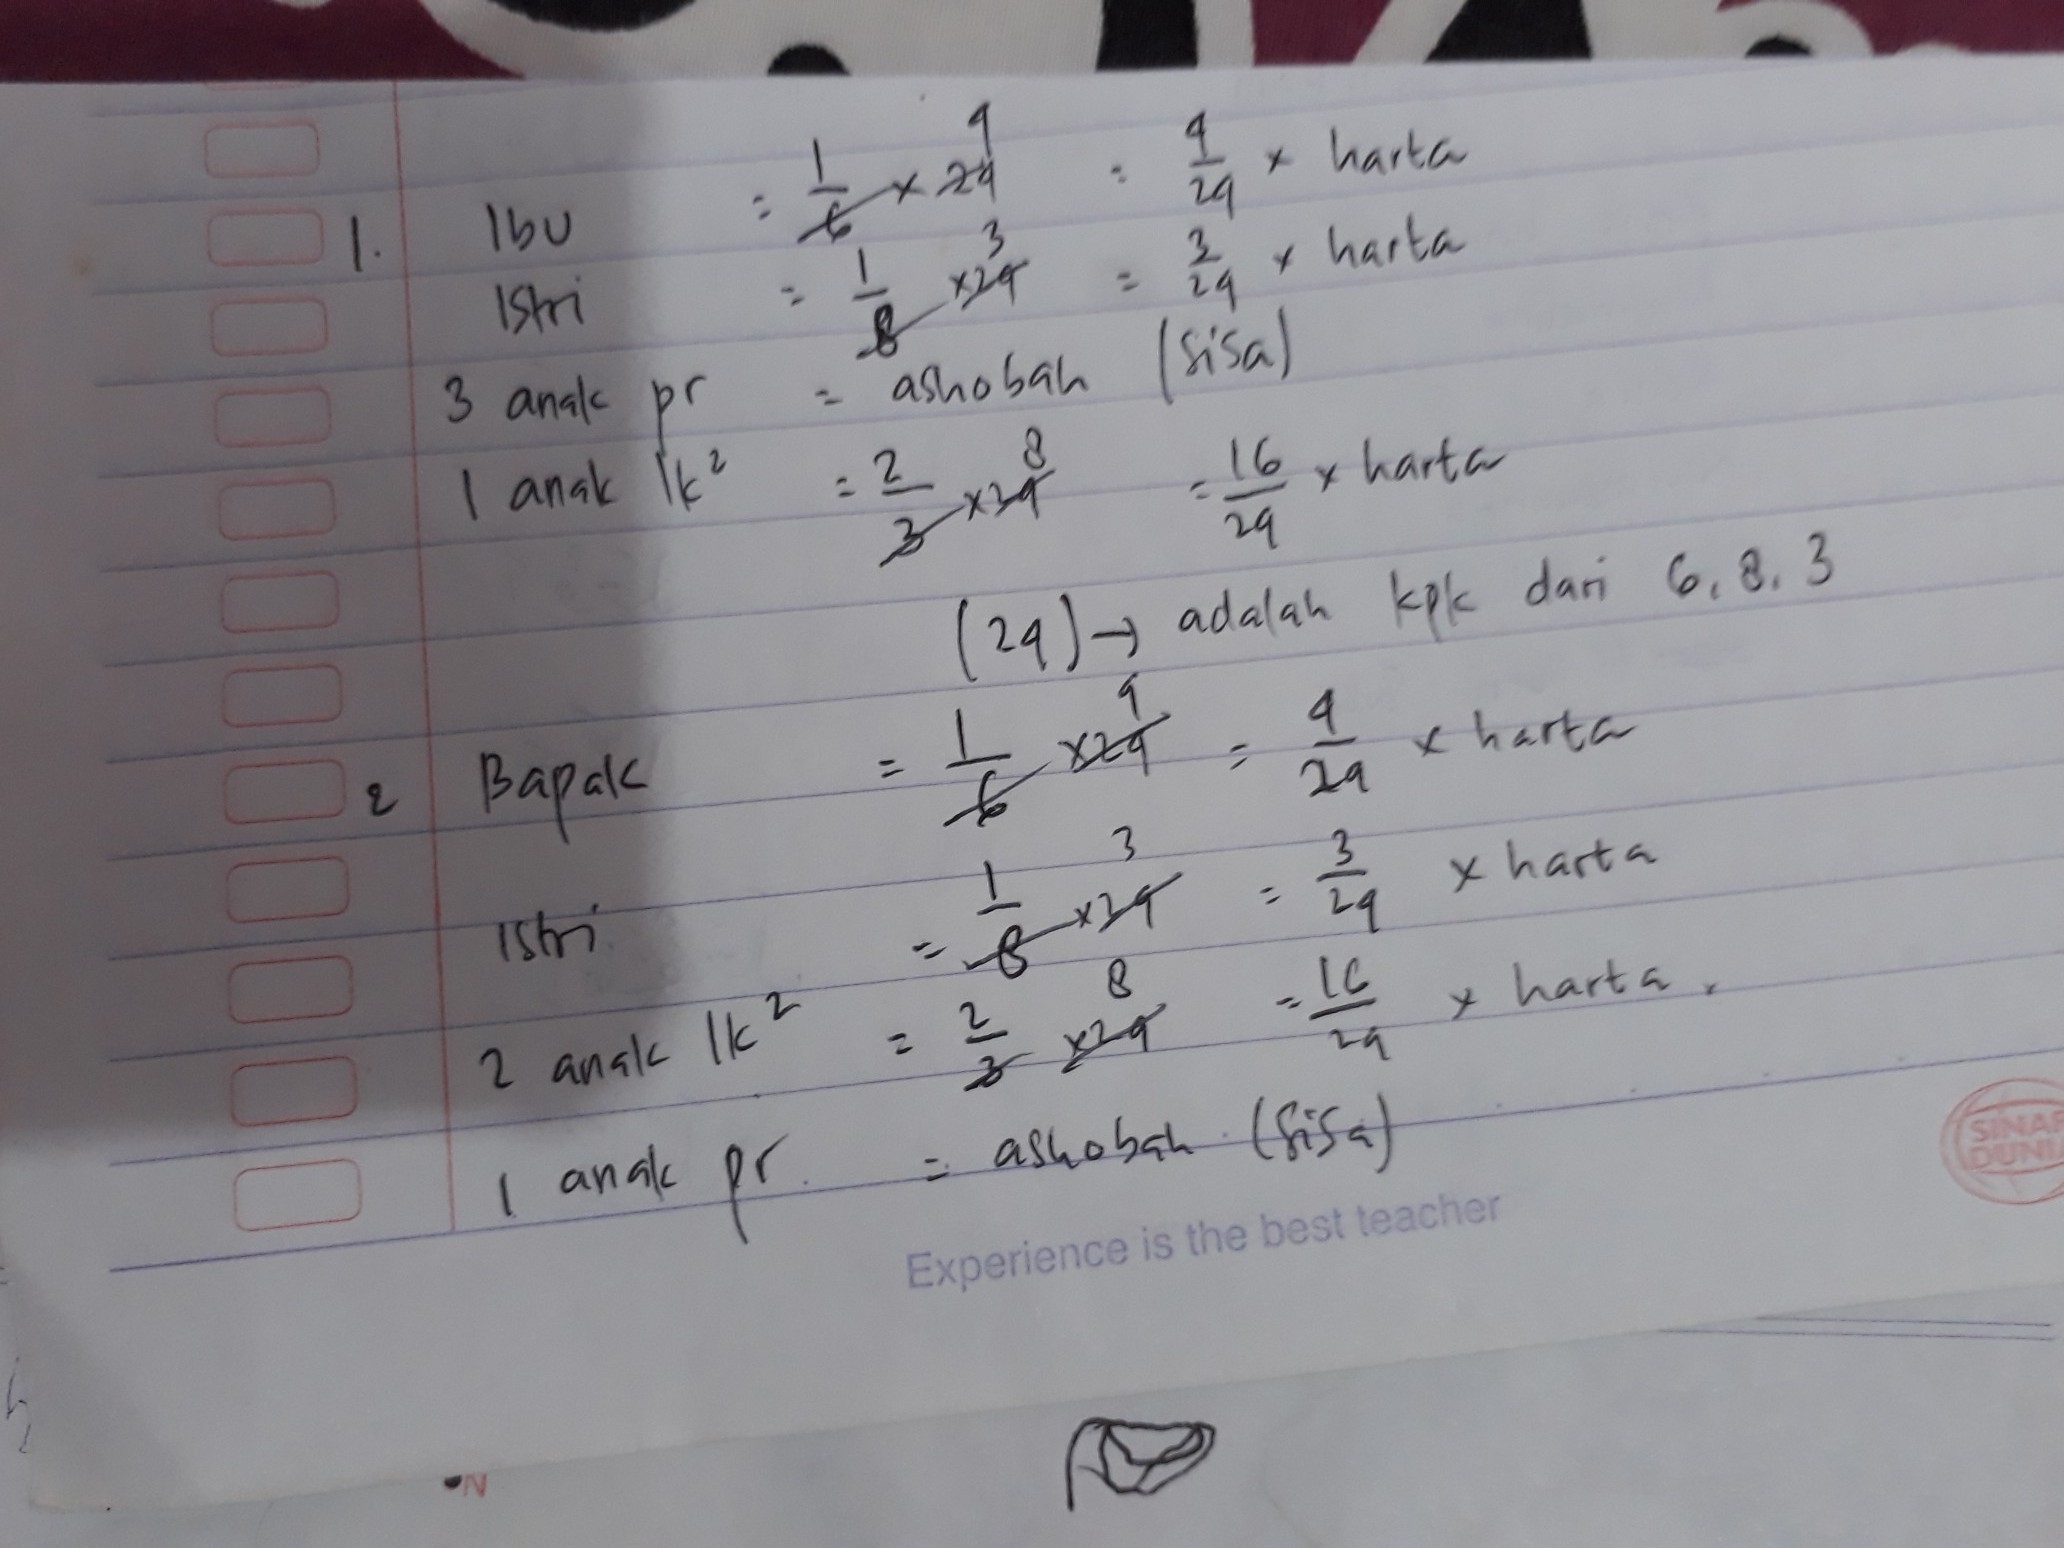 1. Ibu = 1/6 x 24 4 = 4/24 x harta
Istri = 1/8 x 24 3 = 3/24 x harta
3 anak pr = ashobah (sisa)
1 anak lk² = 2/3 x 24 8 = 16/24 x harta
(24) → adalah kpk dari 6, 8, 3
2 Bapak = 1/6 x 24 4 = 4/24 x harta
Istri = 1/8 x 24 3 = 3/24 x harta
2 anak lk² = 2/3 x 24 8 = 16/24 x harta.
1 anak pr. = ashobah (sisa)
Experience is the best teacher
SINAR
DUNIA
N